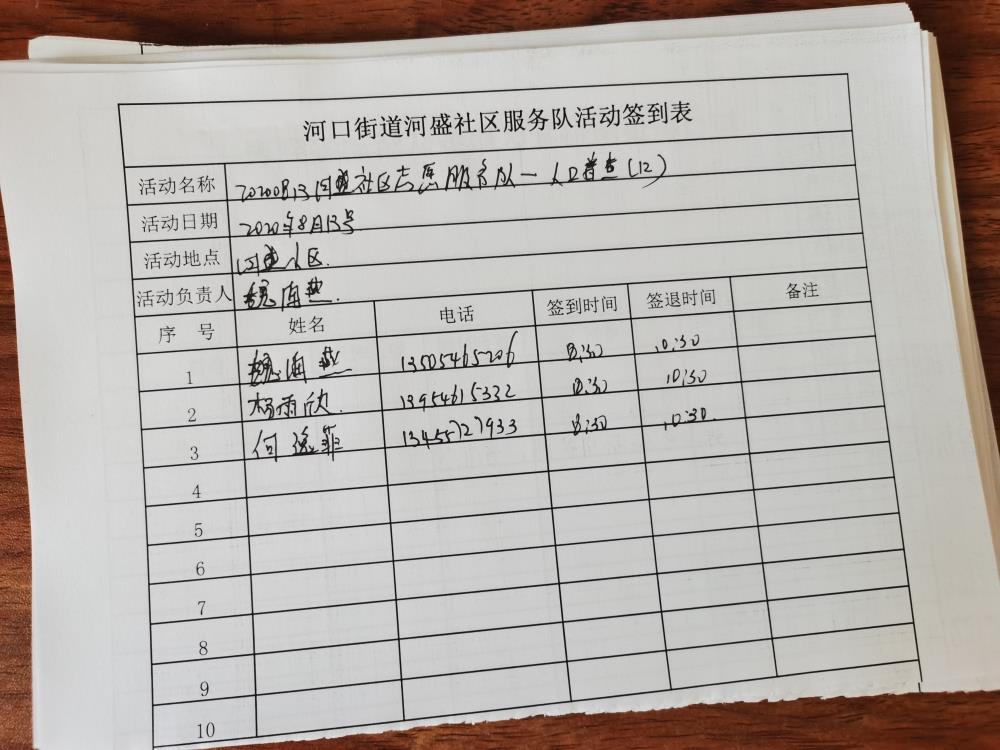 河口街道河盛社区服务队活动签到表
活动名称 20200813河盛社区志愿服务队一人口普查(12)
活动日期 2020年8月13号
活动地点 河盛社区.
活动负责人 魏海燕.
序 号 姓名 电话 签到时间 签退时间 备注
1 魏海燕 13505465206 8:30 10:30
2 杨雨欣. 13954615332 8:30 10:30
3 何 13455727933 8:30 10:30.
4
5
6
7
8
9
10